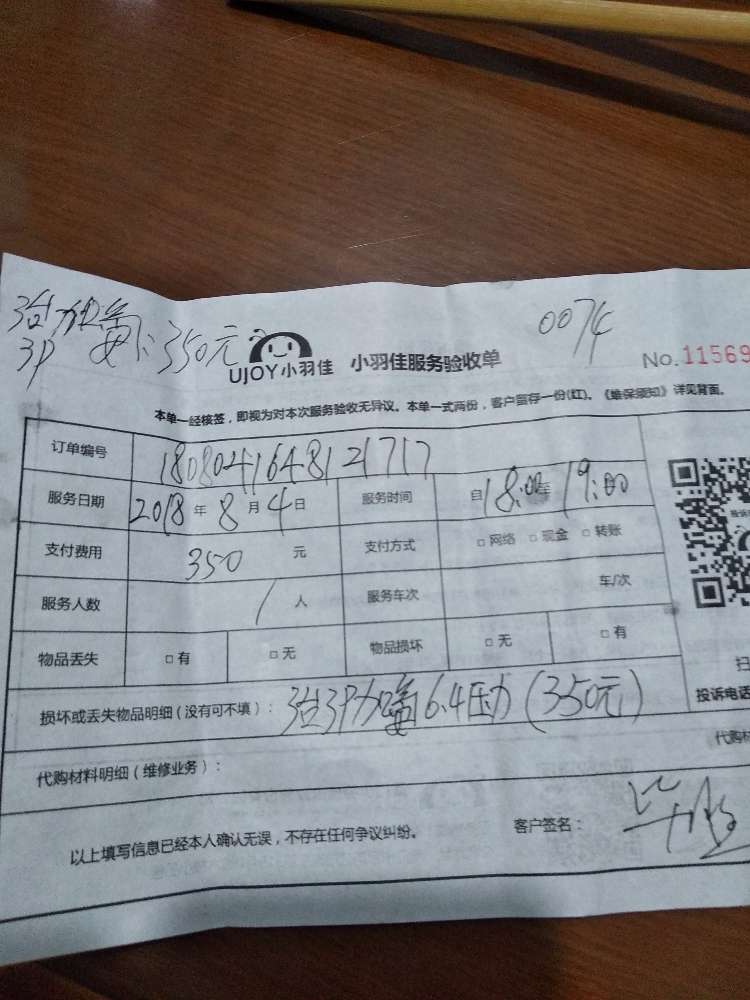 3台加氟
3P
350元
0074
UJOY小羽佳 小羽佳服务验收单
No.11569
本单一经核签，即视为对本次服务验收无异议。本单一式两份，客户留存一份(红)。《维保须知》详见背面。
订单编号 1808041648121717
服务日期 2018年8月4日 服务时间 自18:00至19:00
支付费用 350元 支付方式 □网络 □现金 □转账
服务人数 1人 服务车次 车/次
物品丢失 □有 □无 物品损坏 □无 □有
扫
投诉电话
损坏或丢失物品明细（没有可不填）： 3台3P加氟6.4压力（350元）
代购材料明细（维修业务）： 代购材
以上填写信息已经本人确认无误，不存在任何争议纠纷。 客户签名：